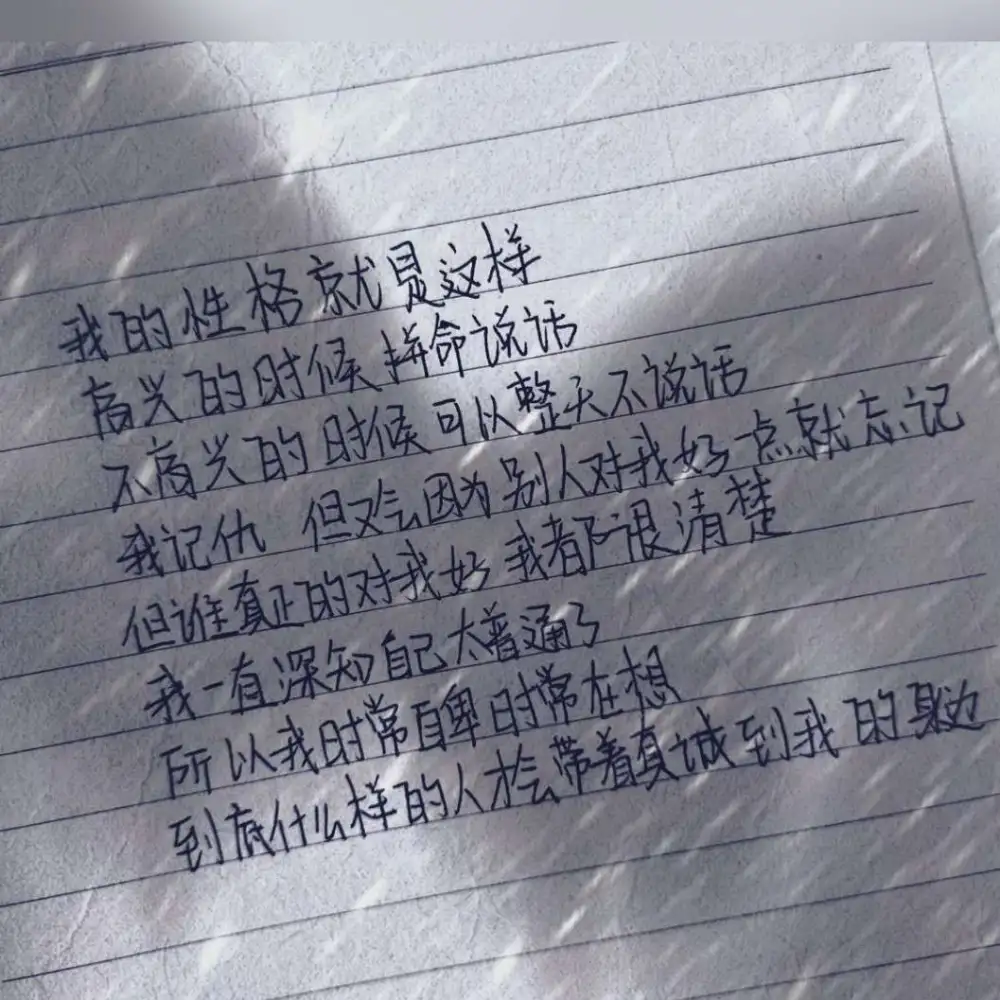 我的性格就是这样
高兴的时候拼命说话
不高兴的时候可以整天不说话
我记仇 但又会因为别人对我好一点就忘记
但谁真正的对我好 我都很清楚
我一直深知自己太普通了
所以我时常自卑时常在想
到底什么样的人才会带着真诚到我的身边